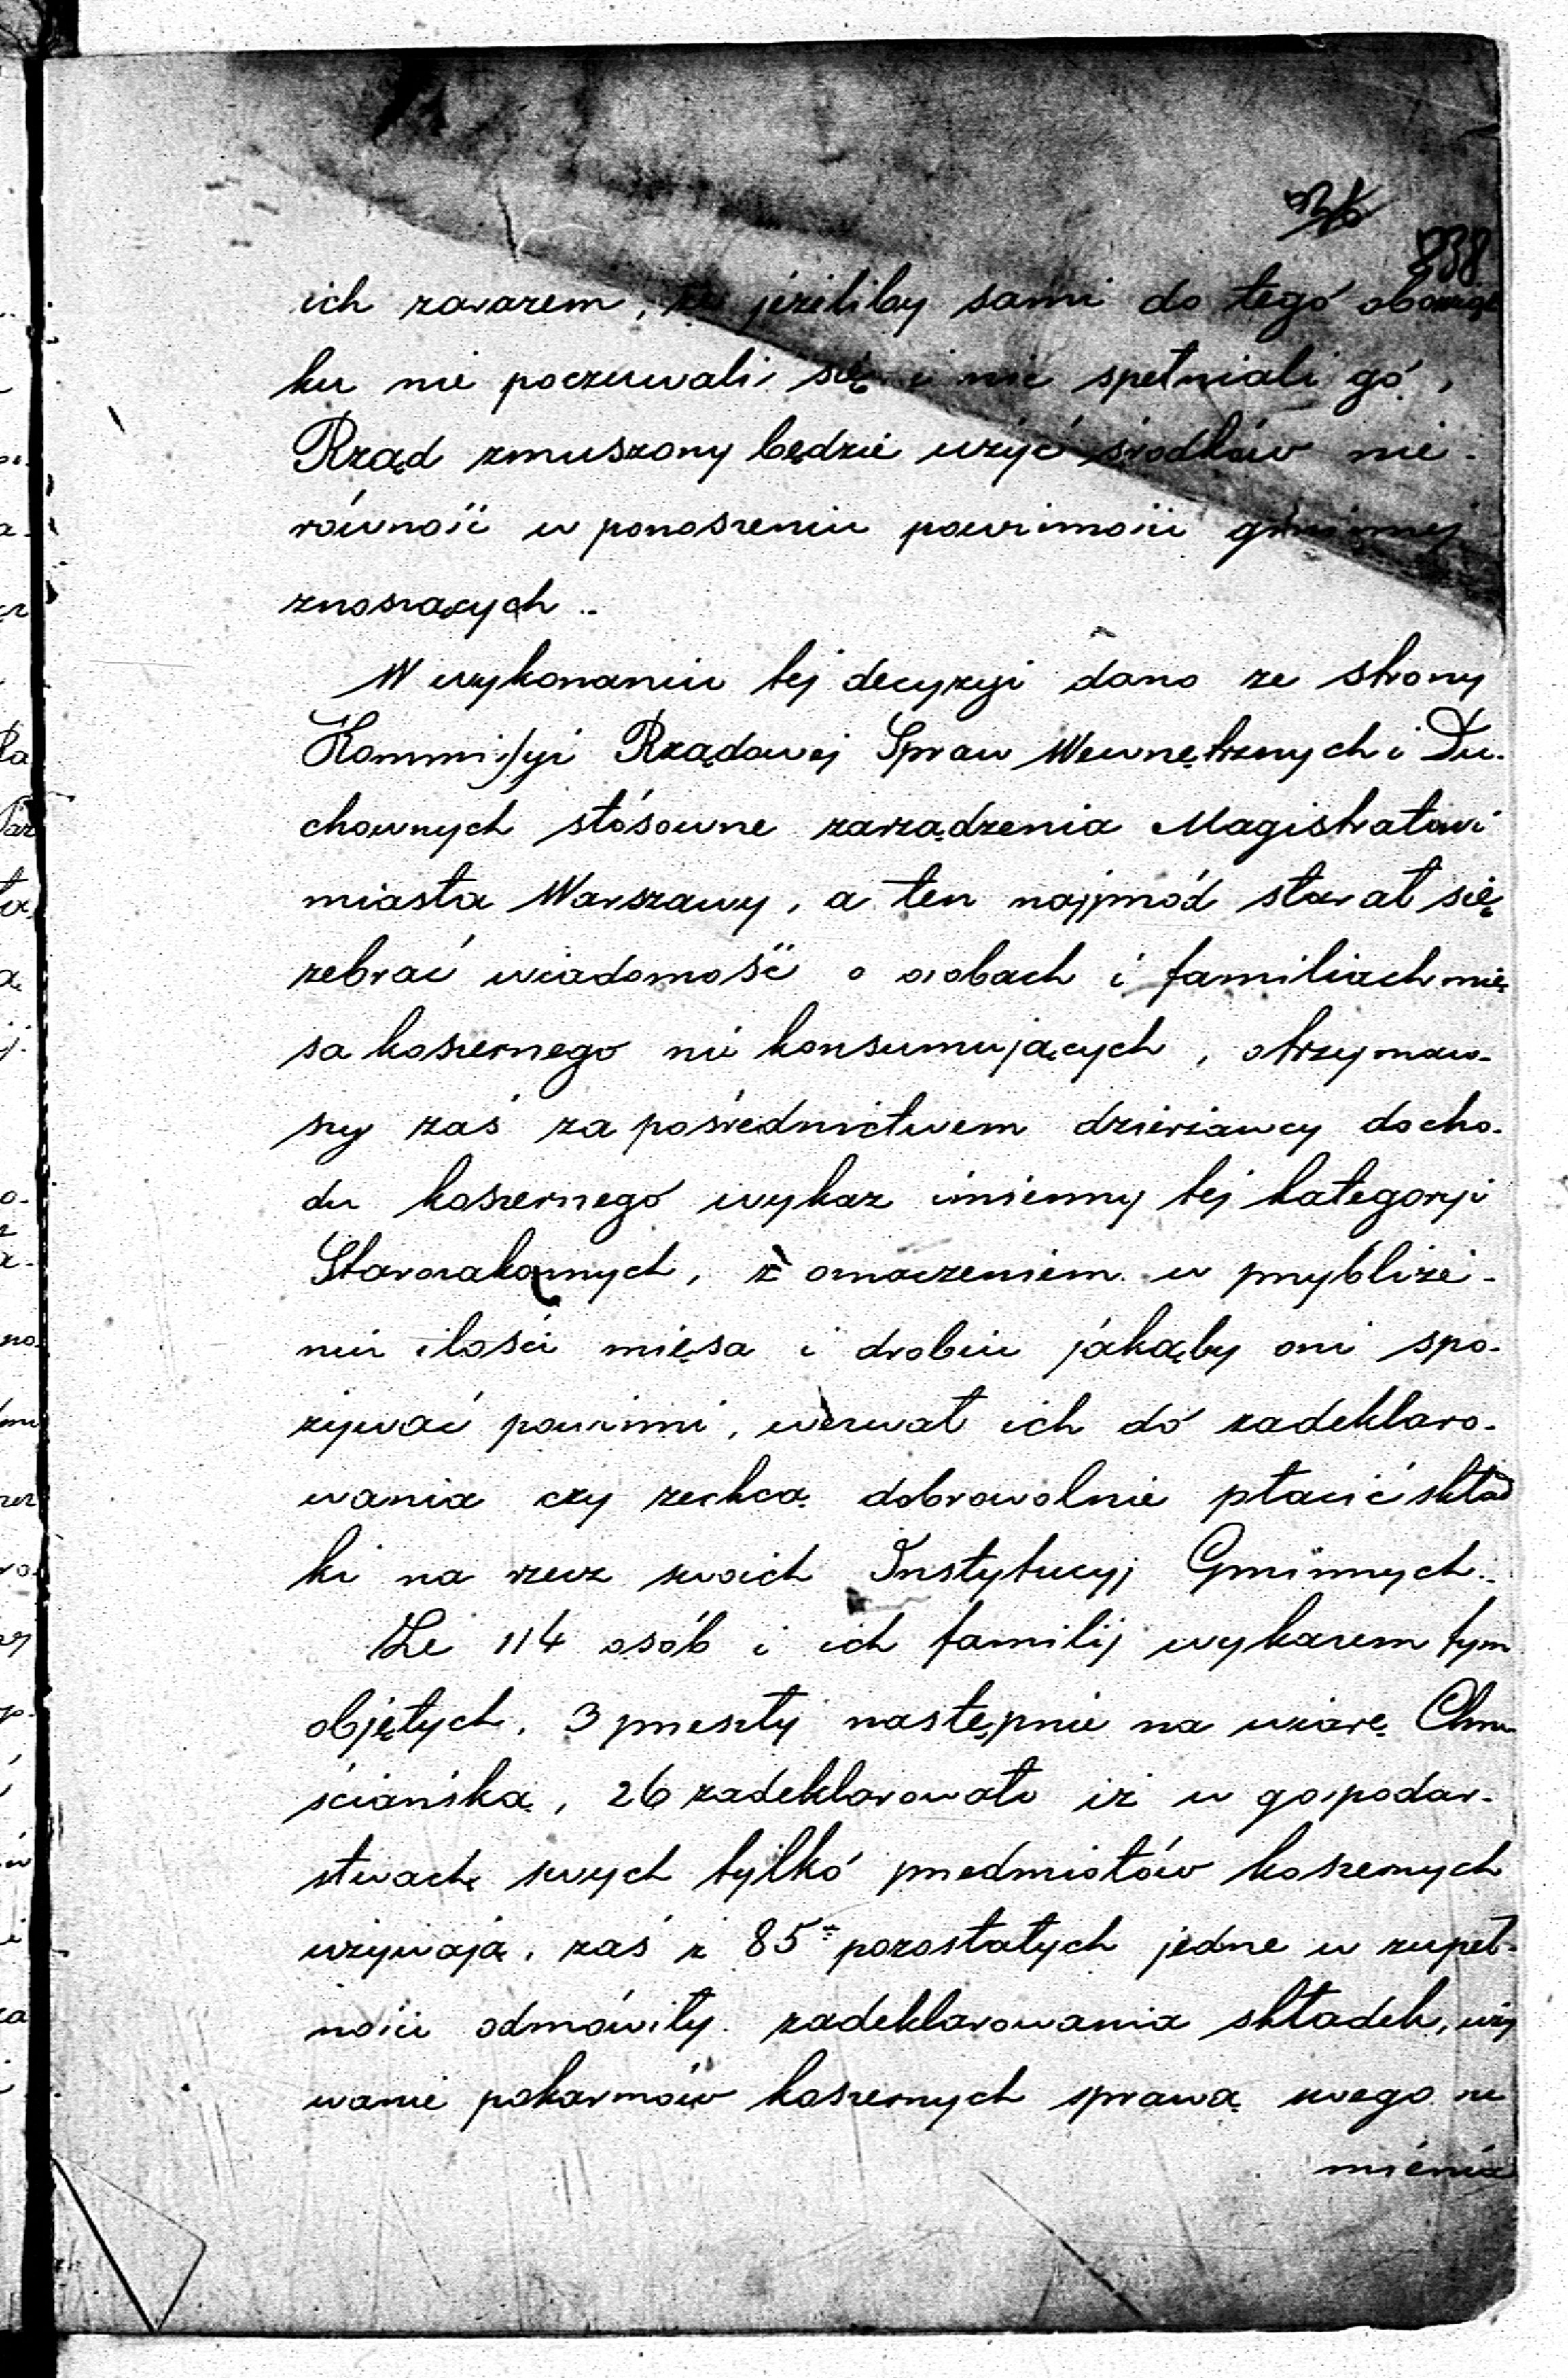 238
ich zarazem, że jeżeliby sami do tego obowiąz
ku nie poczuwali się i nie spełniali go,
Rząd zmuszony będzie użyć środków nie-
równość w ponoszeniu powinności gminnej
znoszących..
W wykonaniu tej decyzyi dano ze strony
Kommissyi Rządowej Spraw Wewnętrznych i Du-
chownych stósowne zarządzenia Magistratowi
miasta Warszawy, a ten najprzód starał się
zebrać wiadomość o osobach i familiach mię-
sa koszernego nie konsumujących, otrzymaw-
szy zaś za pośrednictwem dzierżawcy docho-
du koszernego wykaz imienny tej kategoryi
Starozakonnych, z oznaczeniem w przybliże-
niu ilości mięsa i drobiu jakąby oni spo-
żywać powinni, wezwał ich do zadeklaro-
wania czy zechcą dobrowolnie płacić skład
ki na rzecz swoich Instytucyj Gminnych..
Ze 114 osób i ich familij wykazem tym
objętych, 3 przeszły następnie na wiarę Chrze
ściańską, 26 zadeklarowało iż w gospodar-
stwach swych tylko przedmiotów koszernych
używają, zaś z 85 pozostałych jedne w zupeł-
ności odmówiły zadeklarowania składek, uży
wanie pokarmów koszernych sprawą swego su
mienia